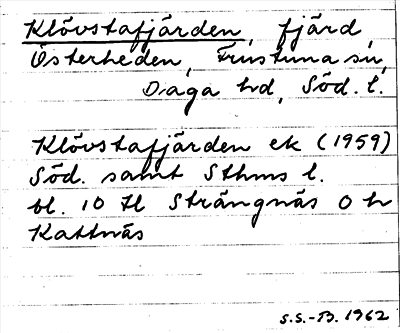 Klövstafjärden, fjärd,
Österheden, Frustuna sn,
Daga hd, Söd. l.
Klövstafjärden ek (1959)
Söd. samt Sthms l.
bl. 10 H Strängnäs O h
Kattnäs
S.S.-B. 1962